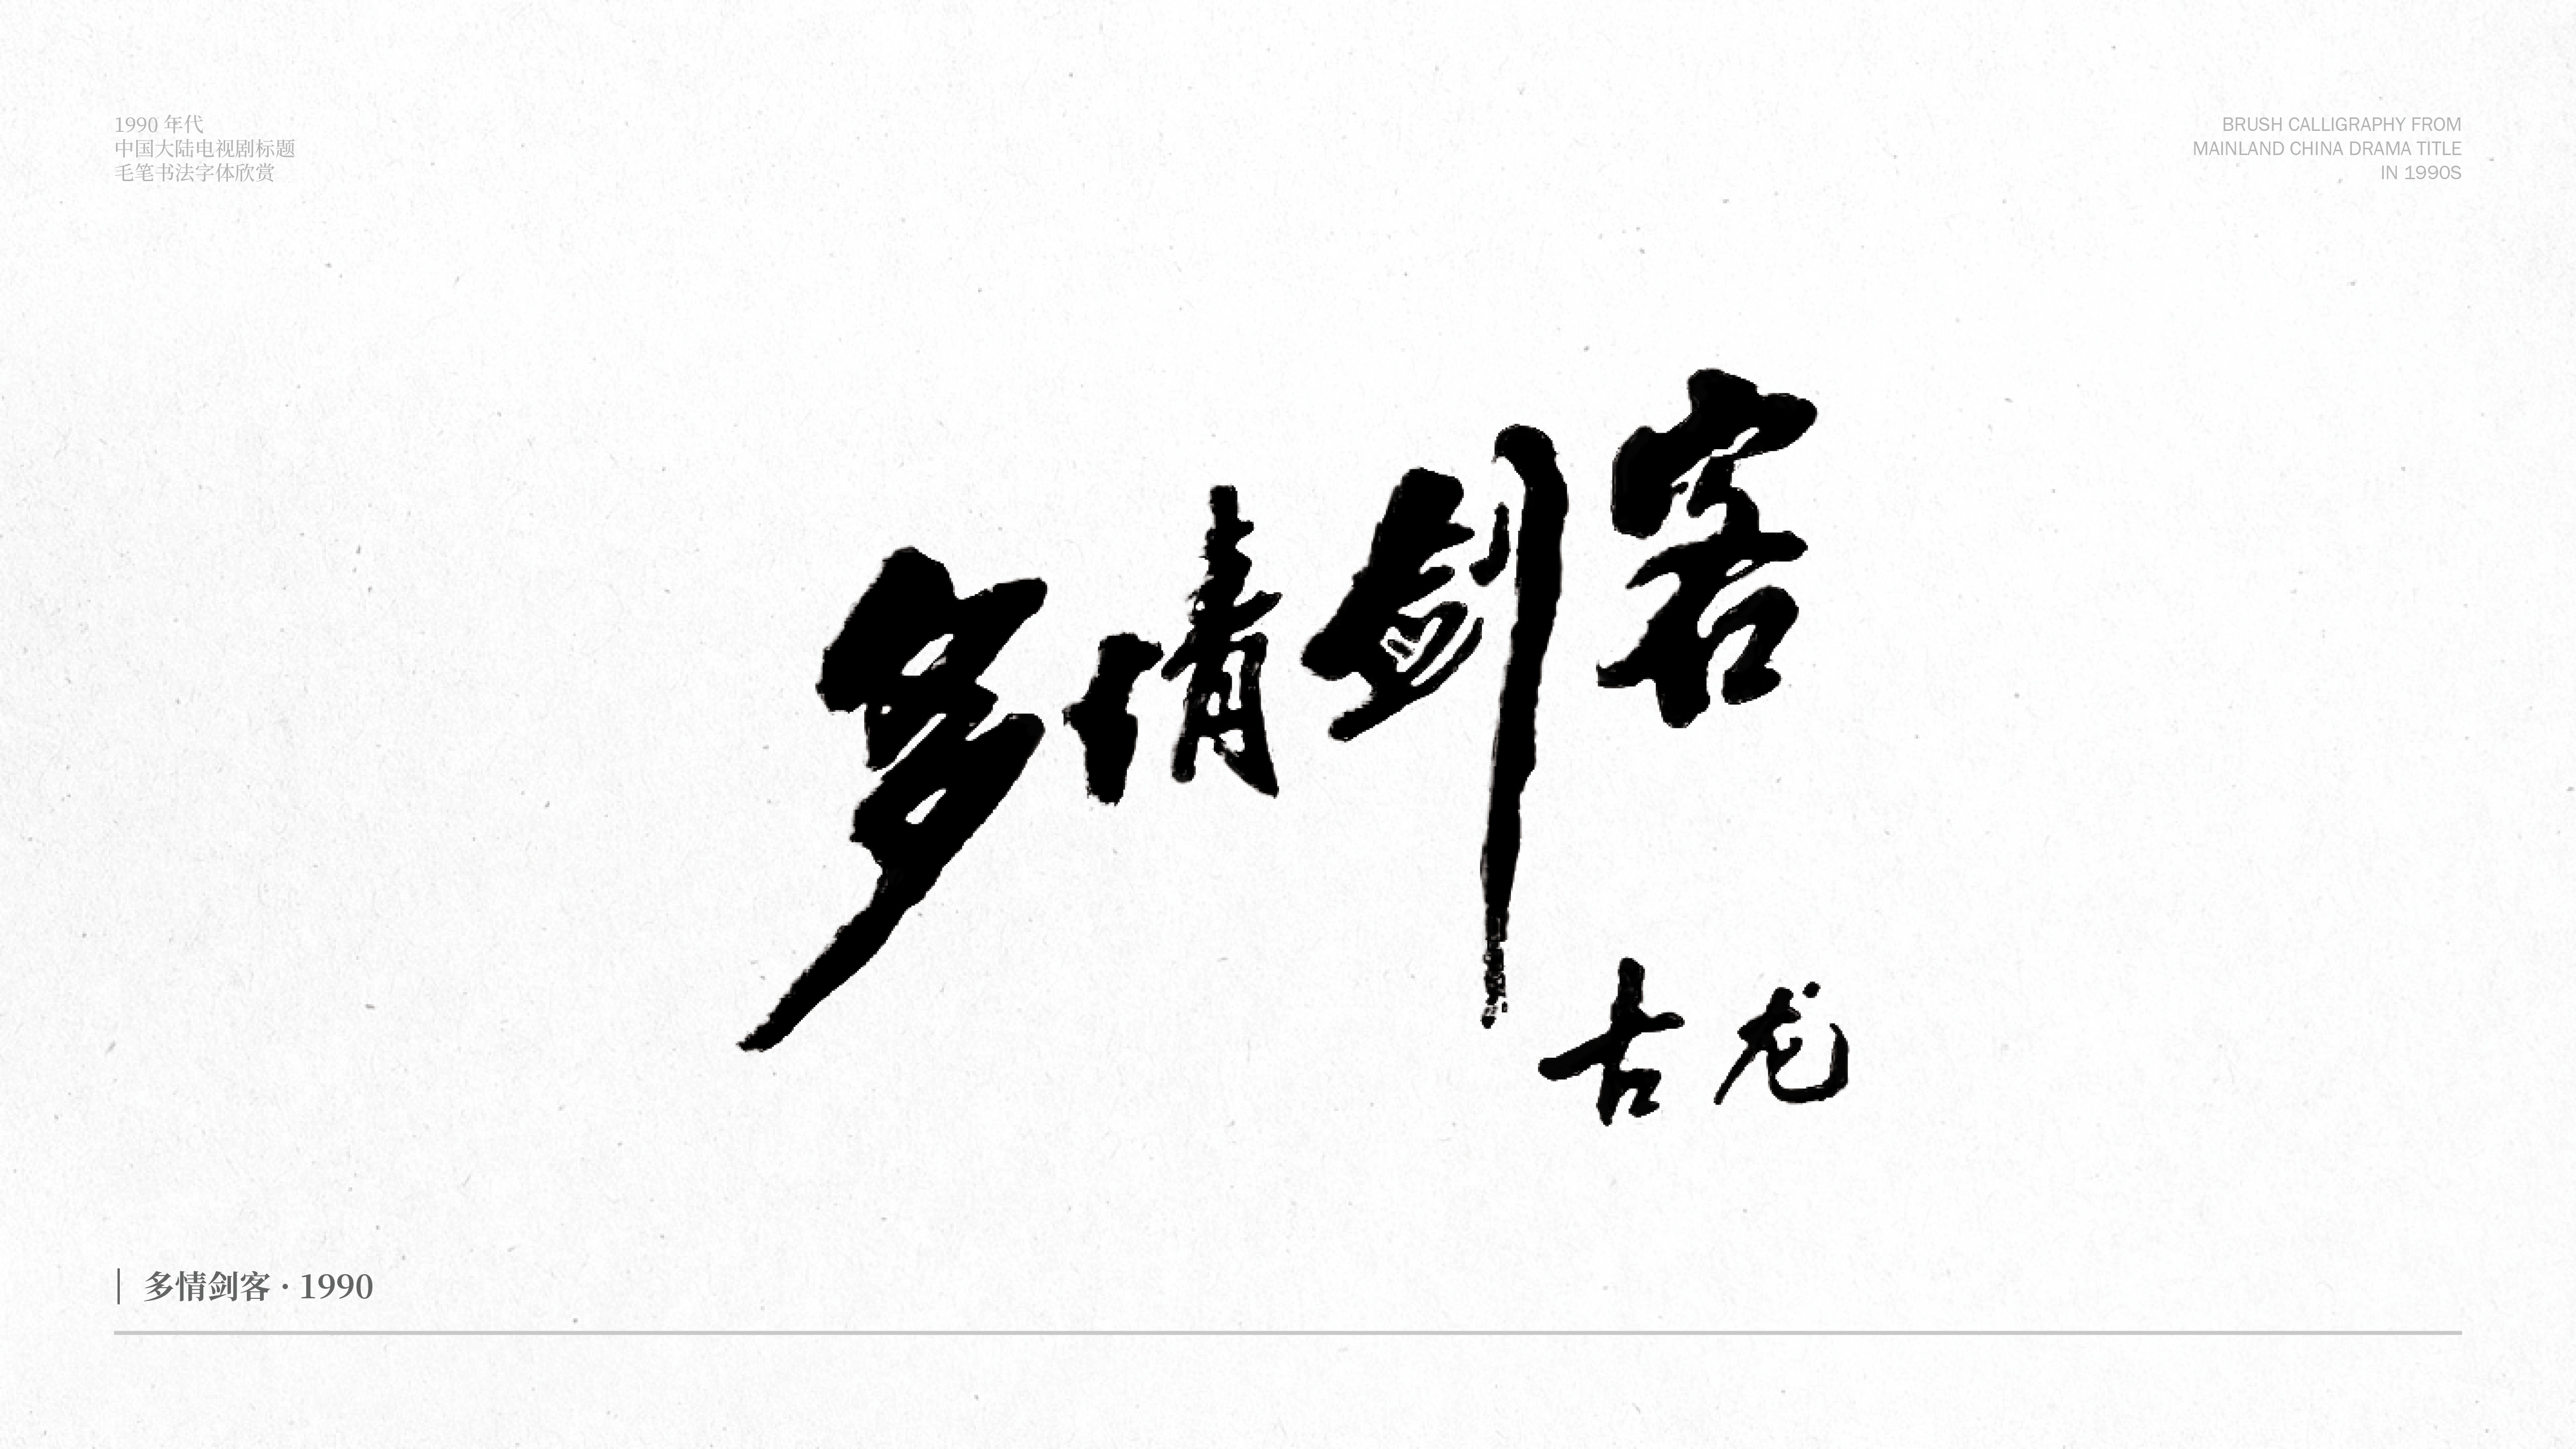 1990 年代
中国大陆电视剧标题
毛笔书法字体欣赏
BRUSH CALLIGRAPHY FROM
MAINLAND CHINA DRAMA TITLE
IN 1990S
多情剑客
古龙
多情剑客 · 1990